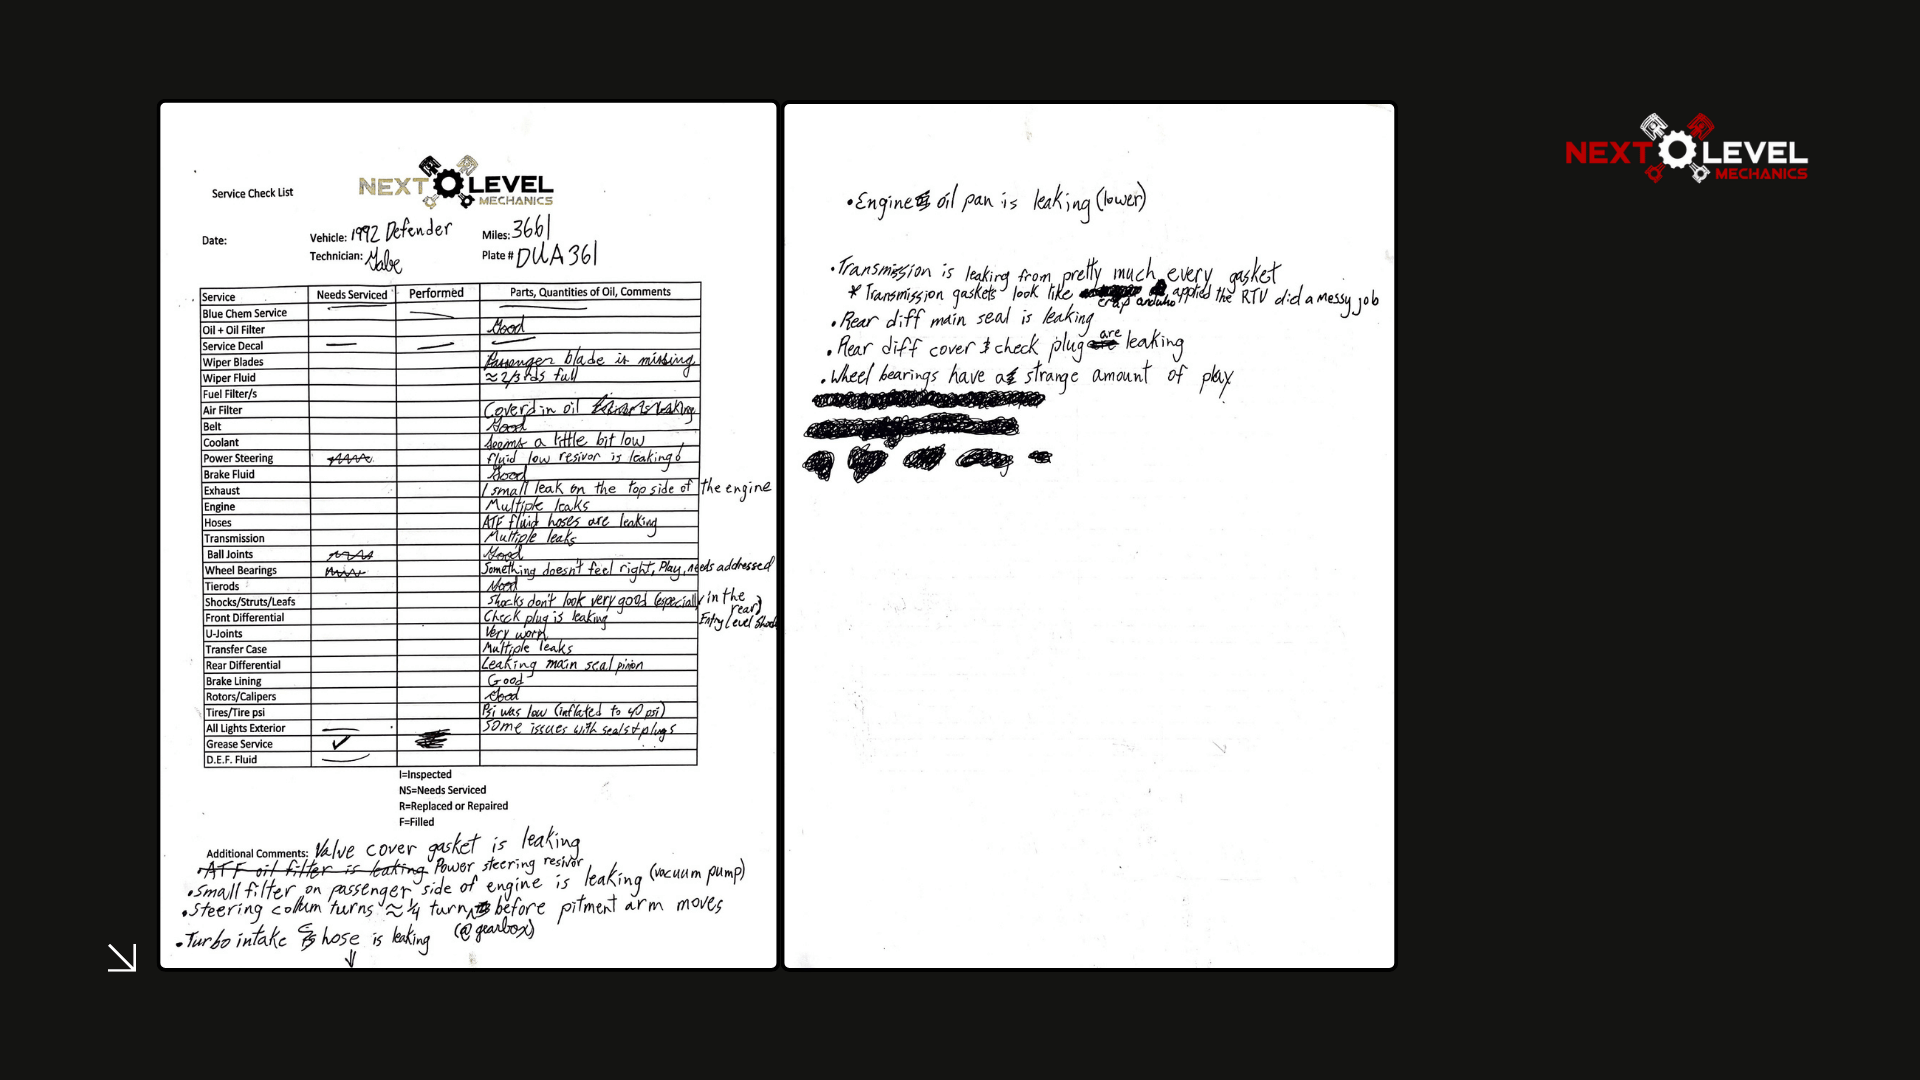 NEXT LEVEL
MECHANICS
Service Check List
NEXT LEVEL
MECHANICS
Date:
Vehicle: 1992 Defender
Miles: 3661
Technician: Gabe
Plate # DUA361
Service Needs Serviced Performed Parts, Quantities of Oil, Comments
Blue Chem Service
Oil + Oil Filter Good
Service Decal
Wiper Blades Passenger blade is missing
Wiper Fluid ≈ 2/3rds full
Fuel Filter/s
Air Filter Coverd in oil
Belt Good
Coolant Seems a little bit low
Power Steering fluid low resivor is leaking
Brake Fluid Good
Exhaust 1 small leak on the top side of the engine
Engine Multiple leaks
Hoses ATF fluid hoses are leaking
Transmission Multiple leaks
Ball Joints Good
Wheel Bearings Something doesn't feel right, Play, needs addressed
Tierods Good
Shocks/Struts/Leafs Shocks don't look very good (especially in the rear) Entry Level Shocks
Front Differential Check plug is leaking
U-Joints Very worn
Transfer Case Multiple leaks
Rear Differential Leaking main seal pinion
Brake Lining Good
Rotors/Calipers Good
Tires/Tire psi Psi was low (inflated to 40 psi)
All Lights Exterior Some issues with seals & plugs
Grease Service ✓
D.E.F. Fluid
I=Inspected
NS=Needs Serviced
R=Replaced or Repaired
F=Filled
Additional Comments: Valve cover gasket is leaking
•ATF oil filter is leaking Power steering resivor
•Small filter on passenger side of engine is leaking (vacuum pump)
•Steering collum turns ≈ 1/4 turn before pitment arm moves
(@gearbox)
•Turbo intake hose is leaking
•Engine oil pan is leaking (lower)
•Transmission is leaking from pretty much every gasket
* Transmission gaskets look like crap and who applied the RTV did a messy job
•Rear diff main seal is leaking
•Rear diff cover & check plug are leaking
•Wheel bearings have a strange amount of play